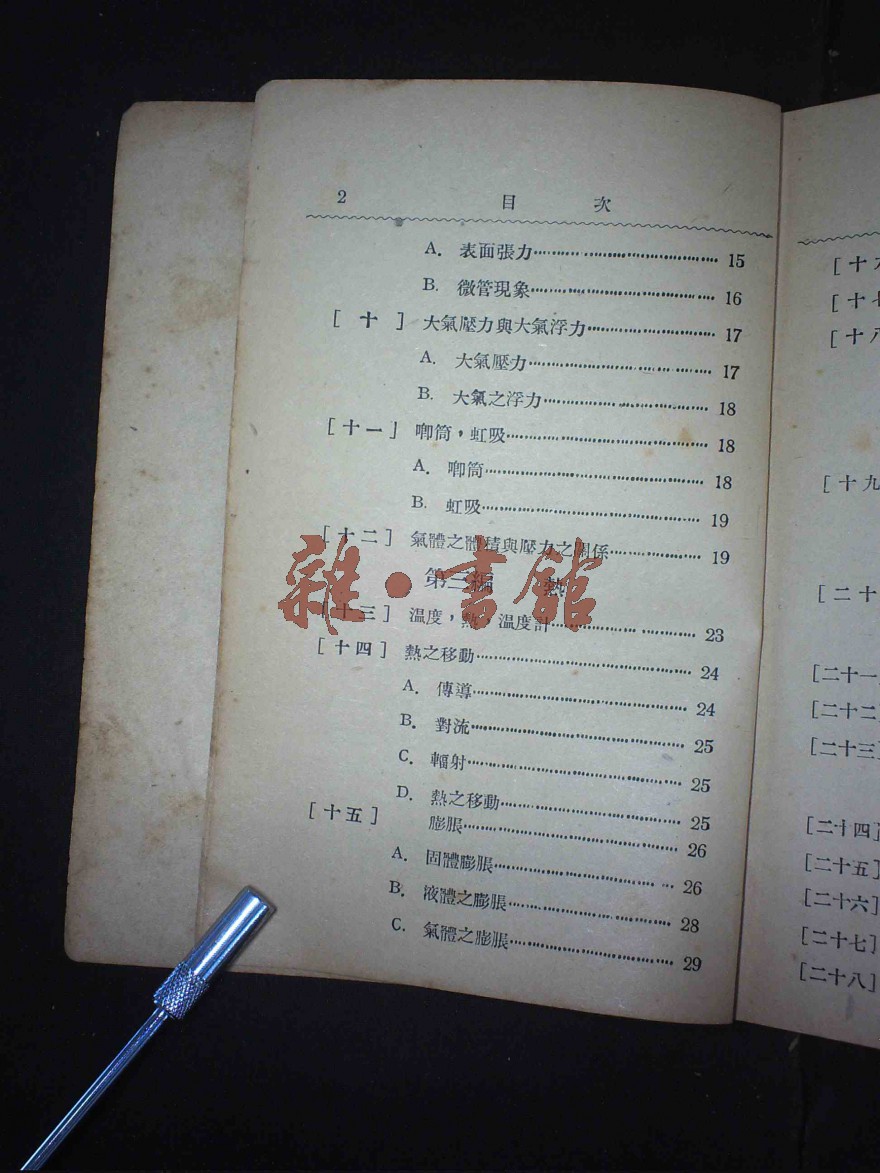 2 目 次
A. 表面張力 15
B. 微管現象 16
[十] 大氣壓力與大氣浮力 17
A. 大氣壓力 17
B. 大氣之浮力 18
[十一] 喞筒，虹吸 18
A. 喞筒 18
B. 虹吸 19
[十二] 氣體之體積與壓力之關係 19
第三編 熱
[十三] 温度，熱，温度計 23
[十四] 熱之移動 24
A. 傳導 24
B. 對流 25
C. 輻射 25
D. 熱之移動 25
[十五] 膨脹 26
A. 固體膨脹 26
B. 液體之膨脹 28
C. 氣體之膨脹 29
雜·書館
[十七
[十八
[十九
[二十
[二十一
[二十二]
[二十三]
[二十四]
[二十五]
[二十六]
[二十七]
[二十八]